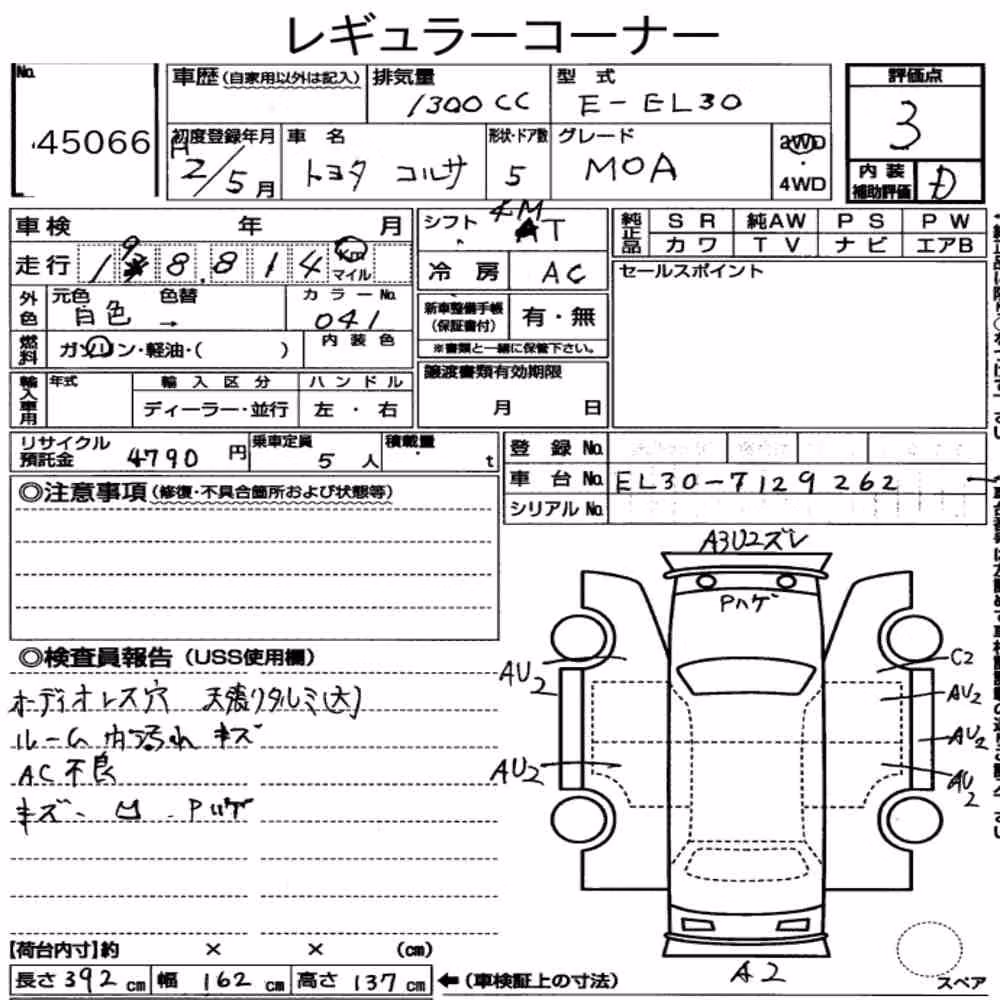 レギュラーコーナー
No. 45066
車歴(自家用以外は記入) 排気量 1300 CC 型式 E-EL30
初度登録年月 H2/5月 車名 トヨタ コルサ 形状・ドア数 5 グレード MOA 2WD・4WD
評価点 3
内装補助評価 D
車検 年 月
走行 198.814 Km マイル
外色 元色 白色 色替 → カラーNo. 041
燃料 ガソリン・軽油・( ) 内装色
輸入車用 年式 輸入区分 ディーラー・並行 ハンドル 左・右
シフト 4M AT
冷房 AC
新車整備手帳(保証書付) 有・無
※書類と一緒に保管下さい。
譲渡書類有効期限
月 日
純正品 SR 純AW PS PW
カワ TV ナビ エアB
セールスポイント
リサイクル預託金 4790円 乗車定員 5人 積載量 t
登録No.
車台No. EL30-7129262
シリアルNo.
◎注意事項(修復・不具合箇所および状態等)
◎検査員報告(USS使用欄)
オーディオレス穴 天張りタルミ(大)
ルーム内汚れ キズ
AC不良
キズ、凹、Pハゲ
A3U2ズレ
Pハゲ
AU2
AU2
C2
AU2
AU2
AU2
A2
スペア
【荷台内寸】約 × × (cm)
長さ392cm 幅162cm 高さ137cm ←(車検証上の寸法)